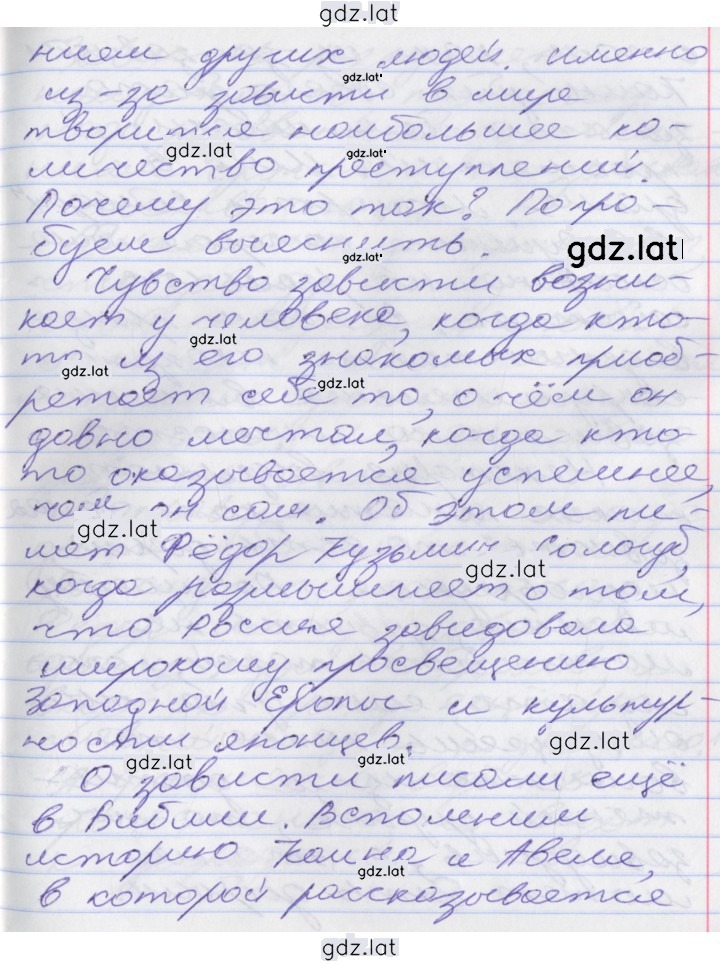 gdz.lat
нием других людей. именно
из-за зависти в мире
творится наибольшее ко-
личество преступлений.
Почему это так? Попро-
буем выяснить.
Чувство зависти возни-
кает у человека, когда кто-
то из его знакомых приоб-
ретает себе то, о чём он
давно мечтал, когда кто-
то оказывается успешнее,
чем он сам. Об этом пи-
шет Фёдор Кузьмич Сологуб,
когда размышляет о том,
что Россия завидовала
широкому просвещению
Западной Европы и культур-
ности японцев.
О зависти писали ещё
в Библии. Вспомним
историю Каина и Авеля,
в которой рассказывается
gdz.lat